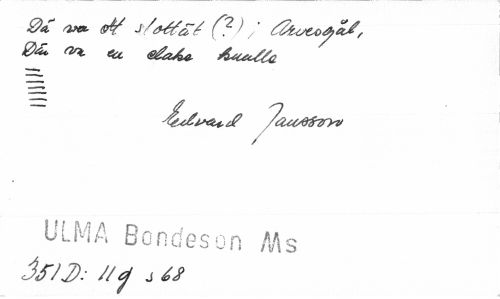 Då va ett slottåt (?) i Arvesgål,
Där va en elaka knalle
Edvard Jansson
ULMA Bondeson Ms
351D: 11g s 68